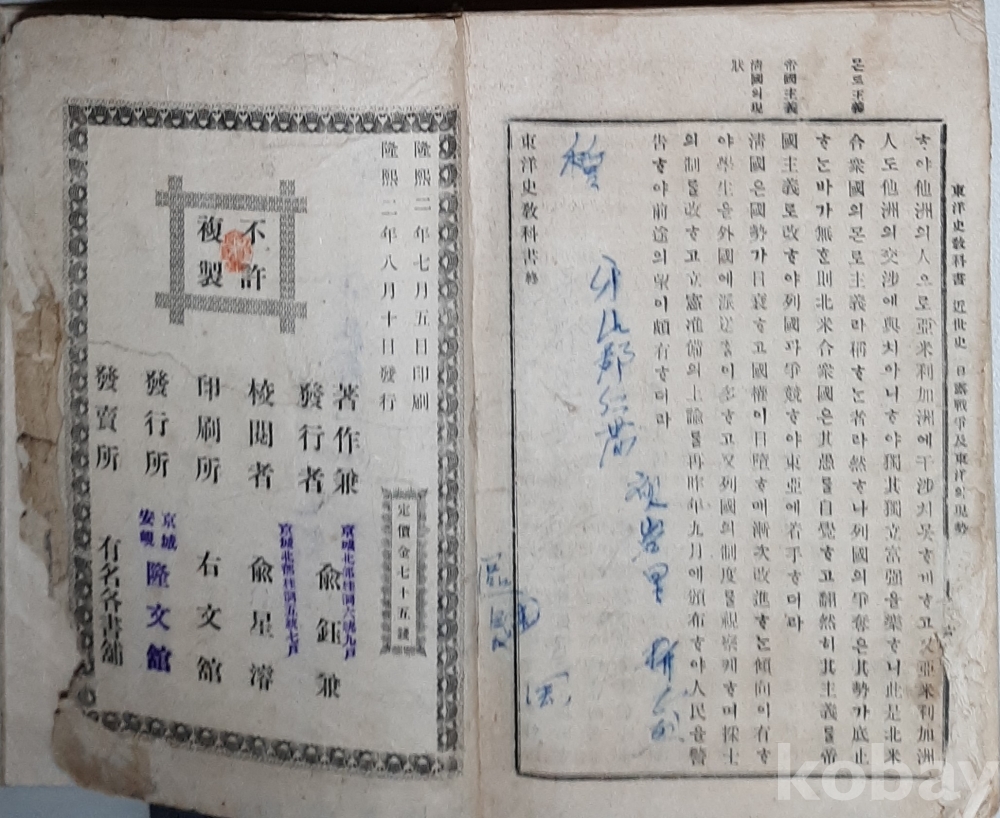 東洋史敎科書 近世史 日露戰爭及東洋의現勢
몬로主義
帝國主義
淸國의現
狀
ᄒᆞ야他洲의人으로亞米利加洲에干涉치못ᄒᆞ게ᄒᆞ고又亞米利加洲
人도他洲의交涉에與치아니ᄒᆞ야獨其獨立富强을樂ᄒᆞ니此是北米
合衆國의몬로主義라稱ᄒᆞᄂᆞᆫ者라然ᄒᆞ나列國의爭奪은其勢가底止
ᄒᆞᄂᆞᆫ바가無ᄒᆞᆫ則北米合衆國은其愚를自覺ᄒᆞ고翻然히其主義를帝
國主義로改ᄒᆞ야列國과爭競ᄒᆞ야東亞에若手ᄒᆞ더라
淸國은國勢가日衰ᄒᆞ고國權이日墮ᄒᆞ매漸次改進ᄒᆞᄂᆞᆫ傾向이有ᄒᆞ
야學生을外國에派送홈이多ᄒᆞ고又列國의制度를視察케ᄒᆞ며採士
의制를改ᄒᆞ고立憲准備의上諭를再昨年九月에頒布ᄒᆞ야人民을警
告ᄒᆞ야前途의望이頗有ᄒᆞ더라
東洋史敎科書終
牙山郡仁
里
隆熙二年七月五日印刷
隆熙二年八月十日發行
不許
複製
定價金七十五錢
著作兼
發行者
京城北部桂洞六統九戶
兪鈺兼
校閱者
京城北部桂洞五統七戶
兪星濬
印刷所 右文館
發行所
京城
安峴
隆文館
發賣所 有名各書舖
kobay